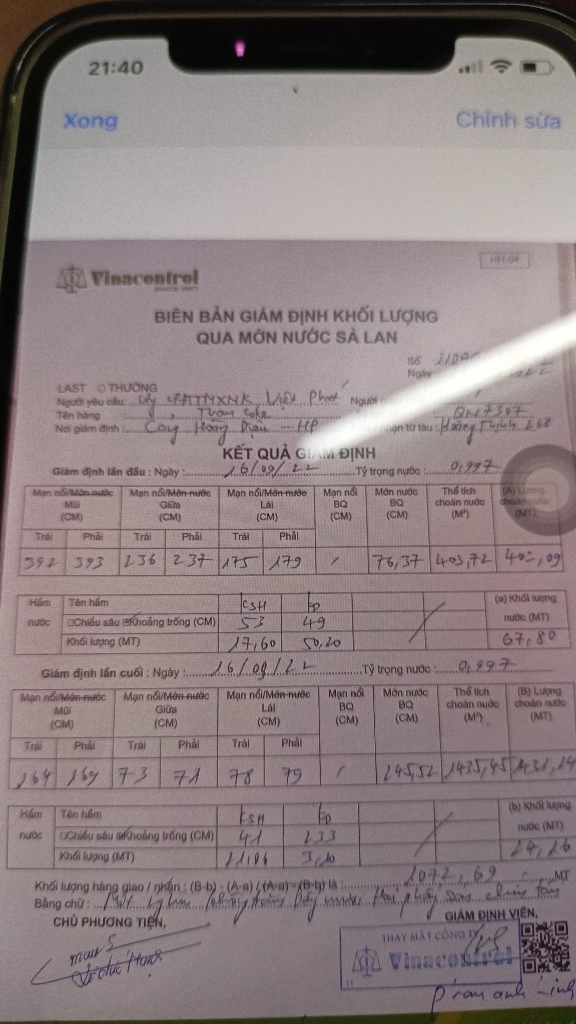 21:40
Xong Chỉnh sửa
HH.04
Vinacontrol
BIÊN BẢN GIÁM ĐỊNH KHỐI LƯỢNG
QUA MỚN NƯỚC SÀ LAN
Số
Ngày
LAST THƯỜNG
Người yêu cầu: Việt Phát Người
Tên hàng Than Coke QN7387
Nơi giám định: Cảng Hoàng Diệu - HP nhận từ tàu:
KẾT QUẢ GIÁM ĐỊNH
Giám định lần đầu : Ngày : 16/09/22 Tỷ trọng nước: 0,997
Mạn nổi/Mớn nước Mạn nổi/Mớn nước Mạn nổi/Mớn nước Mạn nổi Mớn nước Thể tích (A) Lượng
Mũi Giữa Lái BQ BQ choán nước choán nước
(CM) (CM) (CM) (CM) (CM) (M³) (MT)
Trái Phải Trái Phải Trái Phải
392 393 236 237 175 179 / 76,37 403,72
Hầm Tên hầm KSH (a) Khối lượng
nước Chiều sâu Khoảng trống (CM) 53 49 nước (MT)
Khối lượng (MT) 17,60 50,20 67,80
Giám định lần cuối : Ngày : 16/09/22 Tỷ trọng nước: 0,997
Mạn nổi/Mớn nước Mạn nổi/Mớn nước Mạn nổi/Mớn nước Mạn nổi Mớn nước Thể tích (B) Lượng
Mũi Giữa Lái BQ BQ choán nước choán nước
(CM) (CM) (CM) (CM) (CM) (M³) (MT)
Trái Phải Trái Phải Trái Phải
164 169 73 71 78 79 / 245,52 1435,45 1431,14
Hầm Tên hầm KSH (b) Khối lượng
nước Chiều sâu Khoảng trống (CM) 41 233 nước (MT)
Khối lượng (MT) 24,26
Khối lượng hàng giao / nhận : (B-b) - (A-a) / (A-a) - (B-b) là : 1072,69 MT
Bằng chữ : Một nghìn không trăm bảy mươi hai phẩy sáu chín tấn
CHỦ PHƯƠNG TIỆN, GIÁM ĐỊNH VIÊN,
THAY MẶT CÔNG TY
Vinacontrol